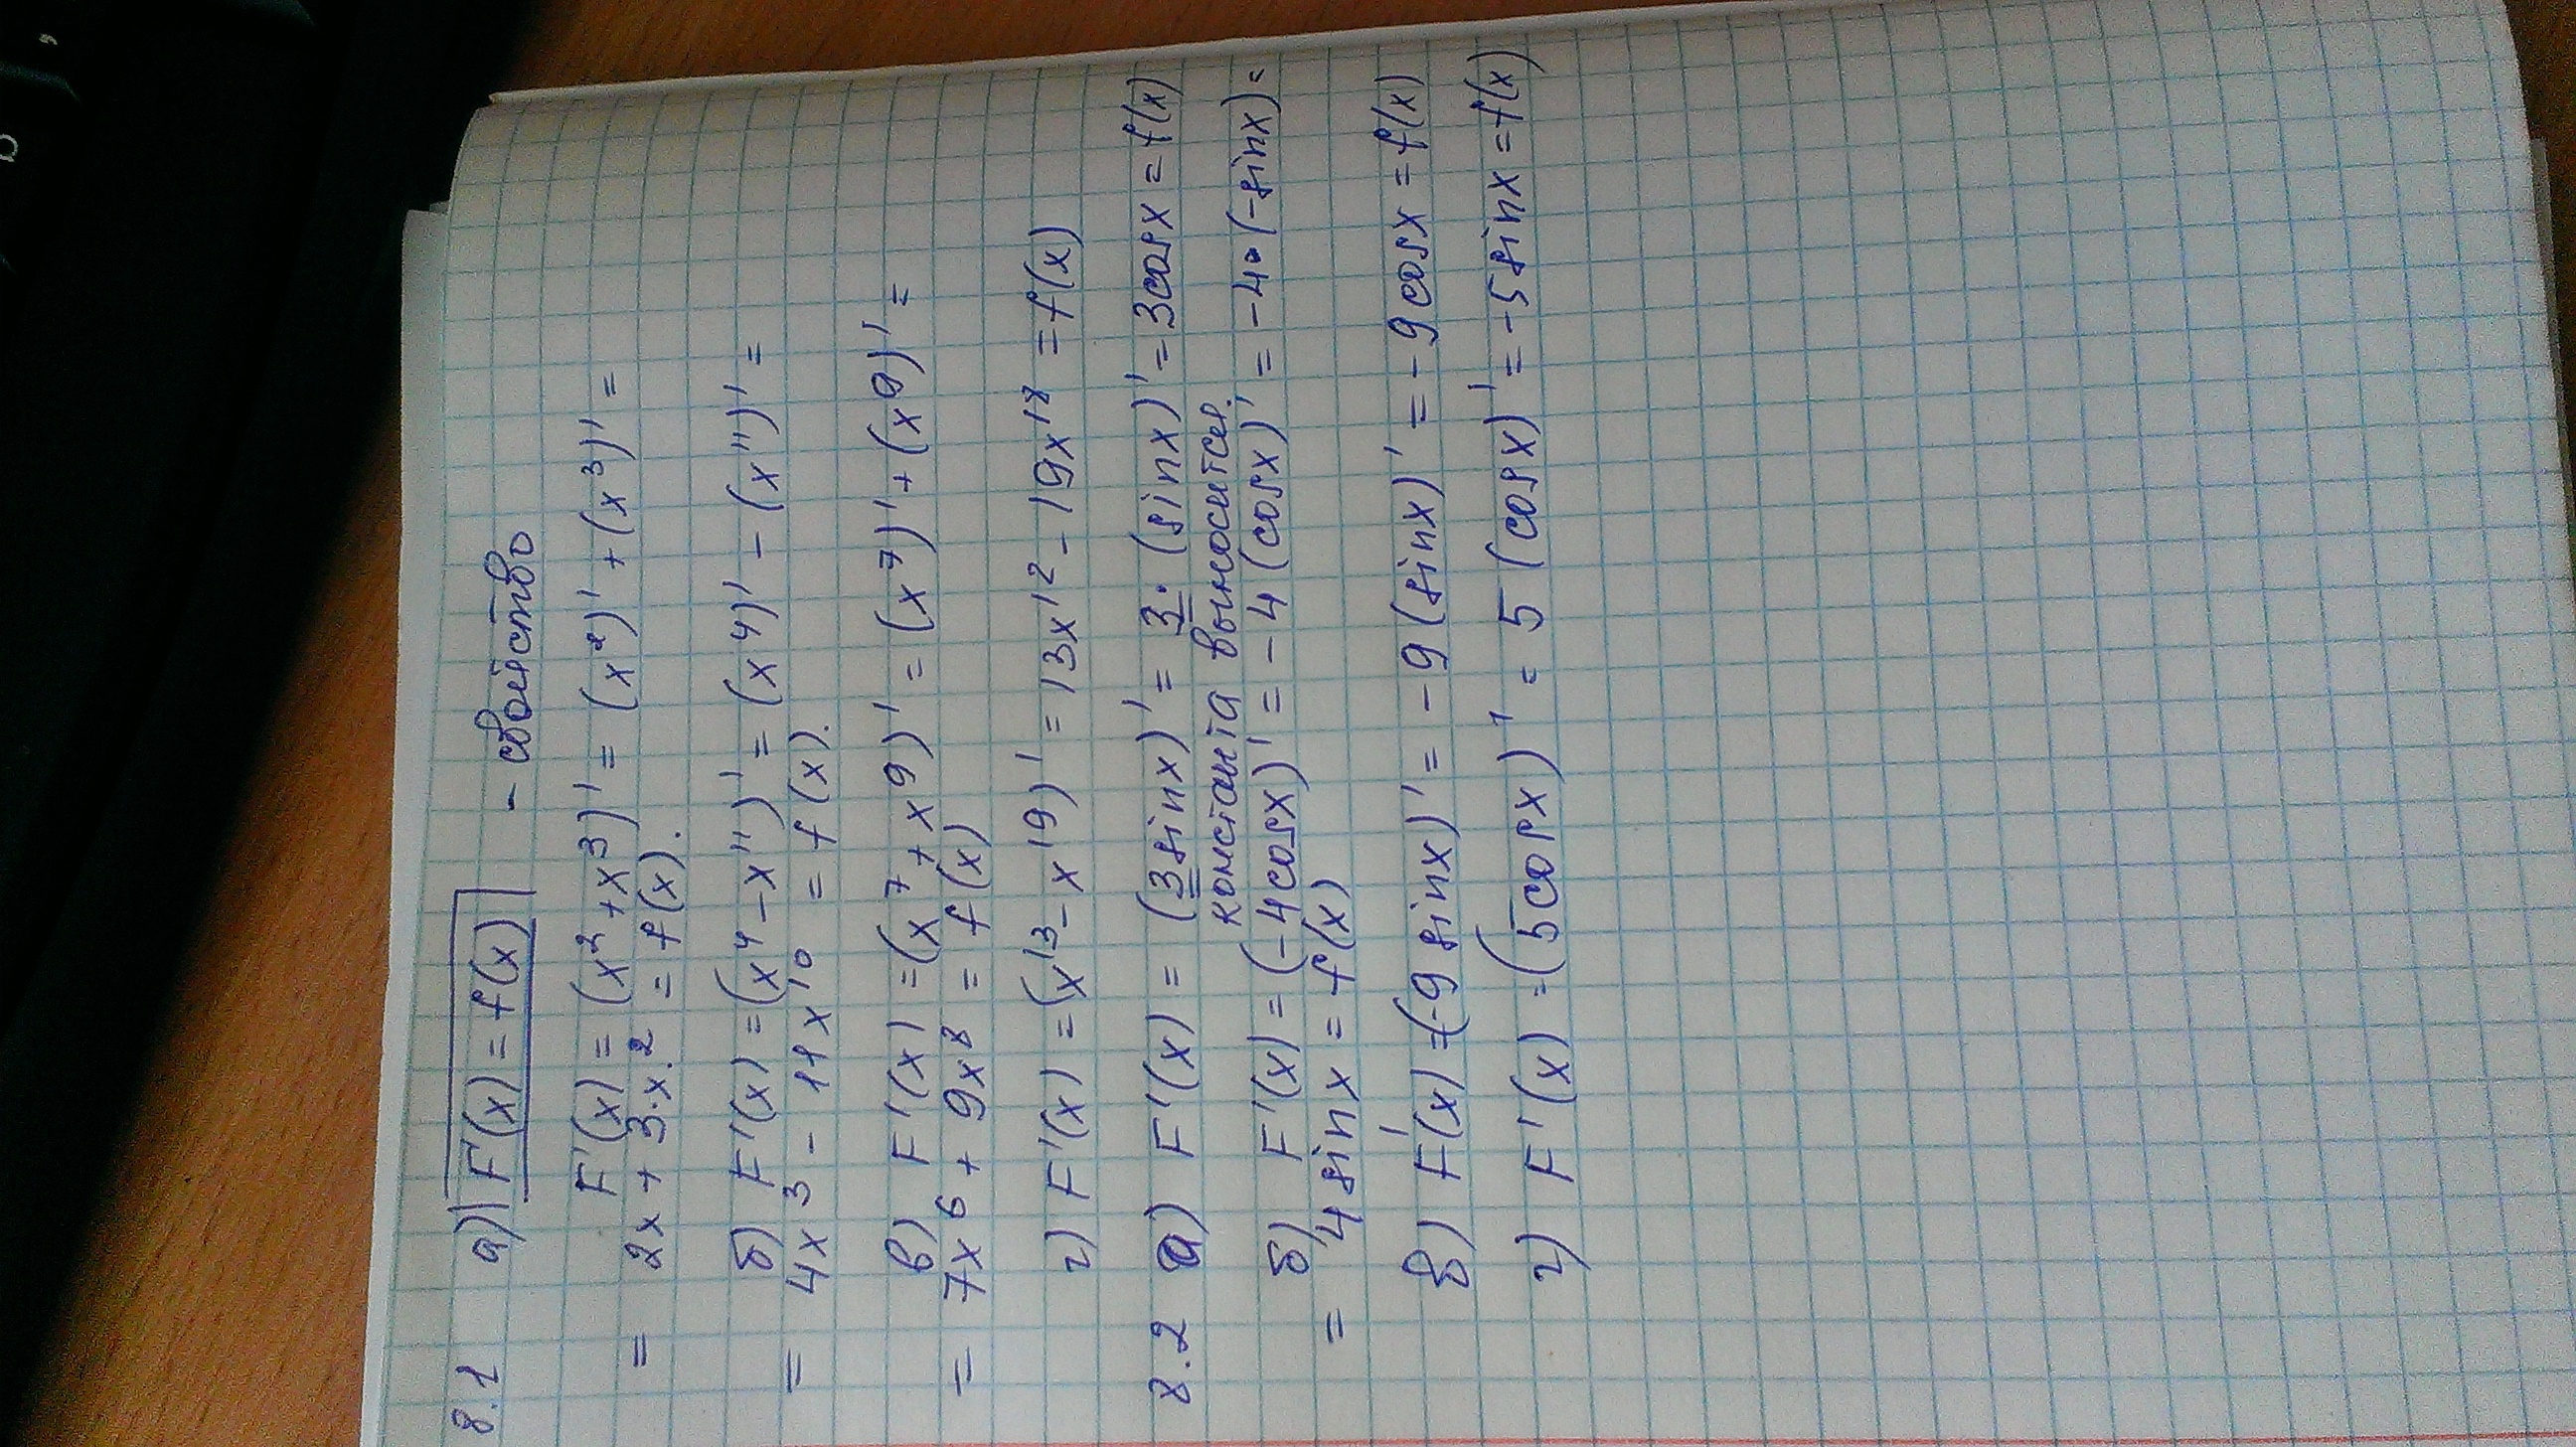 8.1 а) F'(x) = f(x) - свойство
F'(x) = (x² + x³)' = (x²)' + (x³)' =
= 2x + 3·x·2 = f(x).
б) F'(x) = (x⁴ - x¹¹)' = (x⁴)' - (x¹¹)' =
= 4x³ - 11x¹⁰ = f(x).
в) F'(x) = (x⁷ + x⁹)' = (x⁷)' + (x⁹)' =
= 7x⁶ + 9x⁸ = f(x)
г) F'(x) = (x¹³ - x¹⁹)' = 13x¹² - 19x¹⁸ = f(x)
8.2 а) F'(x) = (3sinx)' = 3·(sinx)' = 3cosx = f(x)
константа выносится.
б) F'(x) = (-4cosx)' = -4(cosx)' = -4·(-sinx) =
= 4sinx = f(x)
в) F'(x) = (-9sinx)' = -9(sinx)' = -9cosx = f(x)
г) F'(x) = (5cosx)' = 5(cosx)' = -5sinx = f(x)